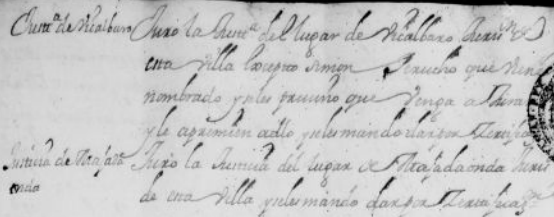 Justi.ª de Vicalbaro
Juro la Justi.ª del lugar de Vicalbaro Juris.on de
esta Villa Excepto Simon Perucho que viene
nombrado y se les previno que Venga a Jurar
y le apremien a ello y se les mando dar por Zertifica
Justicia de Majada
onda
Juro la Justicia del lugar de Majadaonda Juris
de esta Villa y se les mando dar por Zertificaz.on